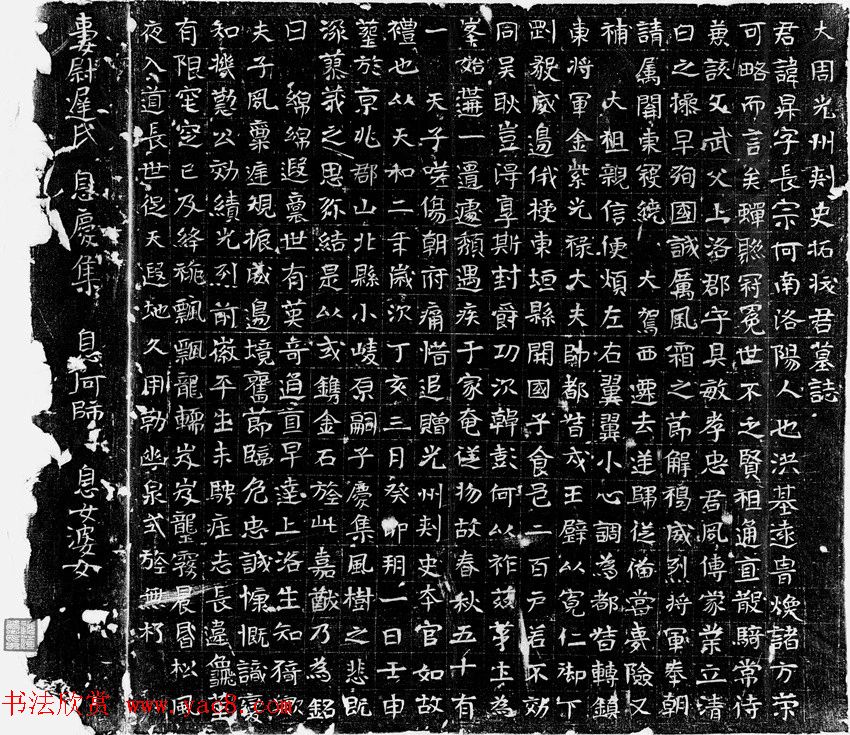 大周光州刺史拓拔君墓誌
君諱昇字長宗河南洛陽人也洪基遠胄煥諸方策
可略而言矣蟬聯冠冕世不乏賢祖通直散騎常侍
兼該文武父上洛郡守具敏孝忠君風傳家業立清
白之操早殉國誠厲風霜之節解褐威烈將軍奉朝
請屬關東 統 大駕西遷去逆歸從備嘗夷險又
補 大祖親信便煩左右翼翼小心調為都督轉鎮
東將軍金紫光祿大夫帥都督戍王壁以寬仁御下
剛毅威邊俄授東垣縣開國子食邑二百戶若不効
同吳耿豈得享斯封爵功次韓彭何以祚茲茅土為
峯始 一遺 頹遇疾于家奄從物故春秋五十有
一 天子嗟傷朝府痛惜追贈光州刺史本官如故
禮也以天和二年歲次丁亥三月癸卯朔一日壬申
塟於京兆郡山北縣小陵原嗣子慶集風樹之悲既
深蓼莪之思弥結是以式鐫金石旌此嘉猷乃為銘
曰 綿綿遐裏世有英奇通直早達上洛生知猗歟
夫子風稟 規振威邊境奮節臨危忠誠慷慨識變
知機懃公効績光烈前徽平生未騁庄志長違龜筮
有限窀穸已及絳旐飄飄龍轜岌岌壟霧晨昏松風
夜入道長世促天遐地久用勒幽泉式旌無朽
妻尉遲氏 息慶集 息阿師 息女婆女
书法欣赏 www.yac8.com